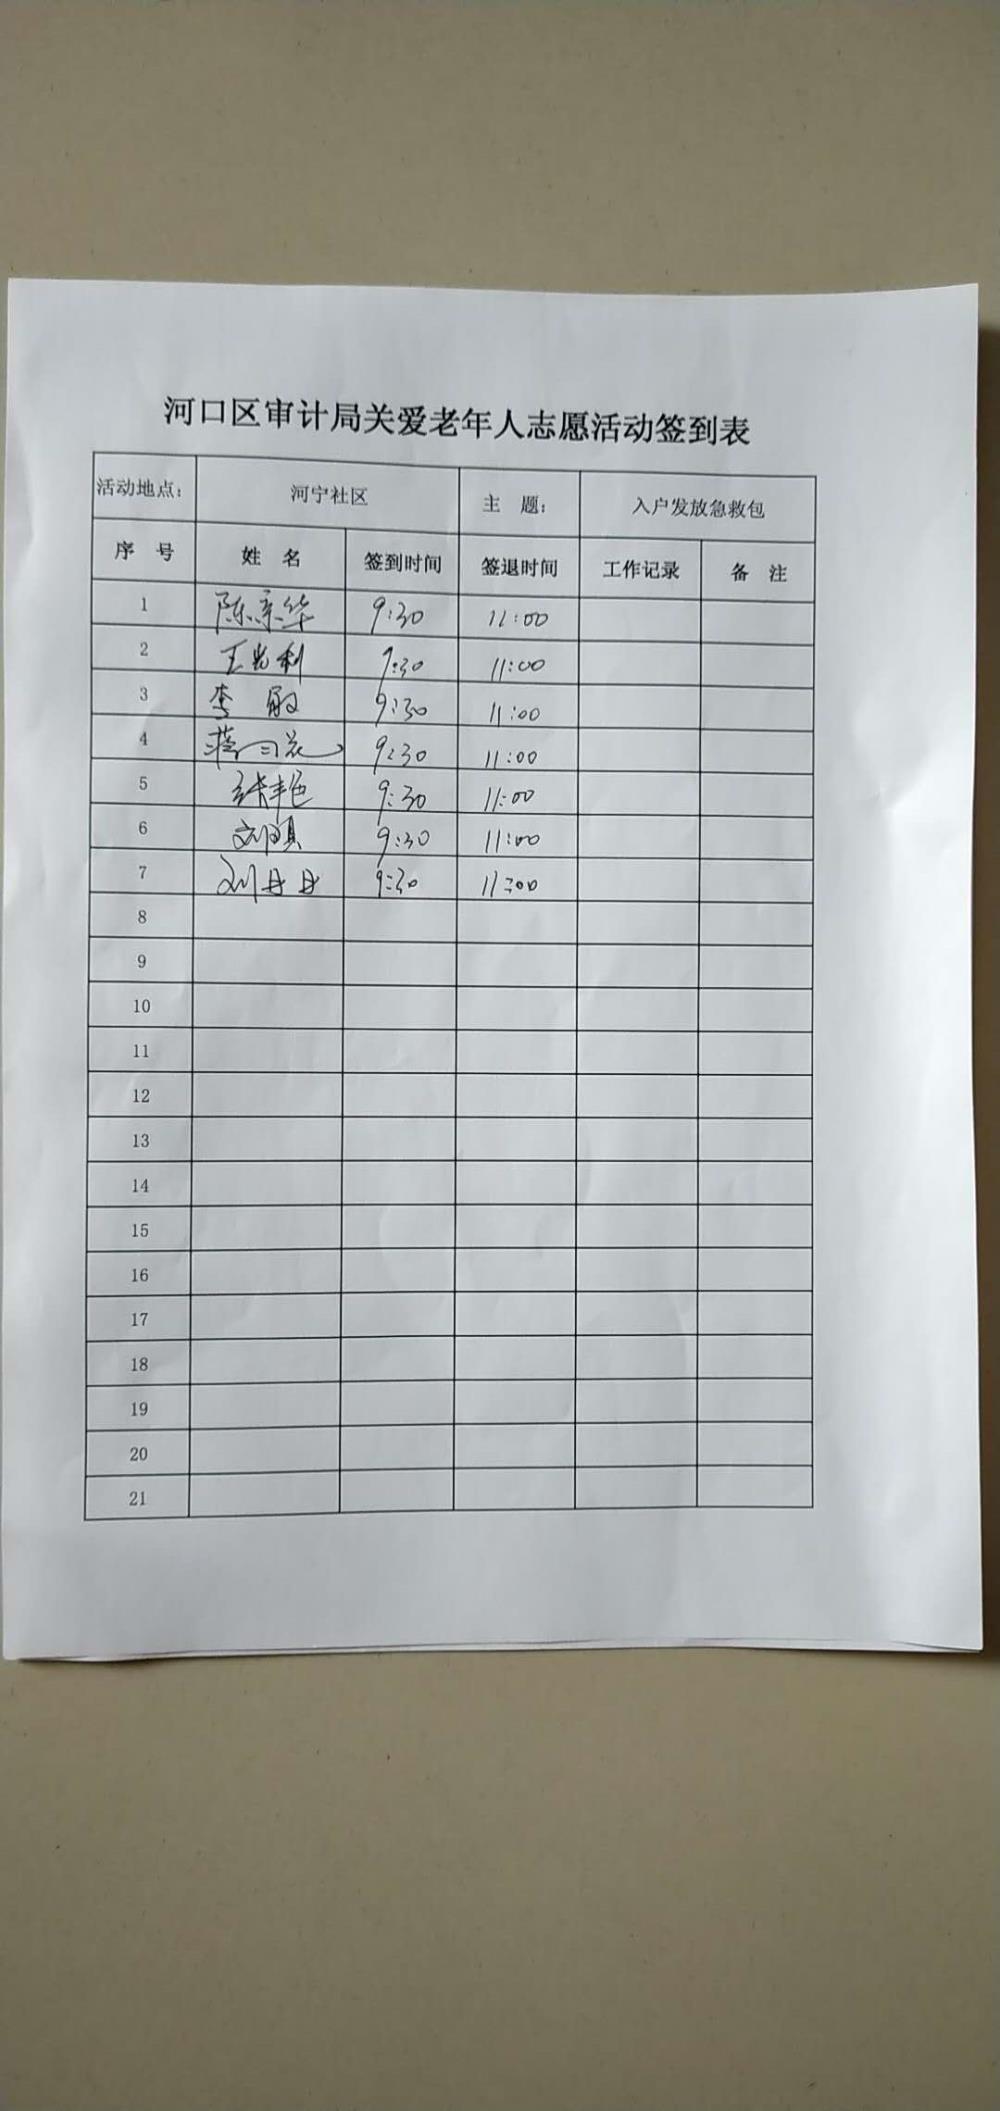 河口区审计局关爱老年人志愿活动签到表
活动地点： 河宁社区 主 题： 入户发放急救包
序 号 姓 名 签到时间 签退时间 工作记录 备 注
1 陈京华 9:30 11:00
2 王光利 9:30 11:00
3 李 敏 9:30 11:00
4 9:30 11:00
5 张丰色 9:30 11:00
6 9:30 11:00
7 刘丹丹 9:30 11:00
8
9
10
11
12
13
14
15
16
17
18
19
20
21